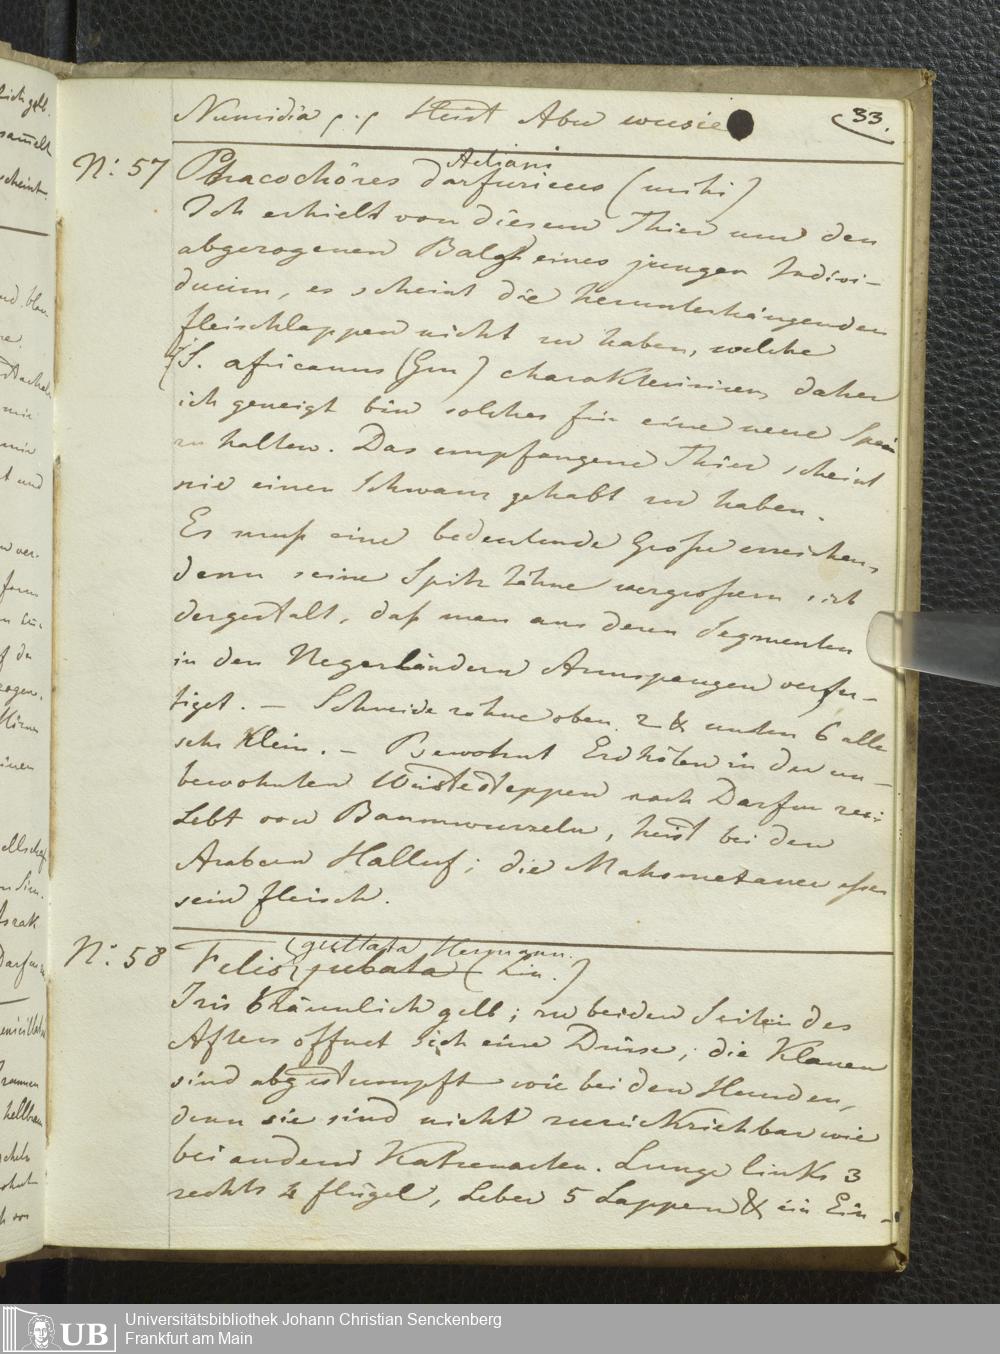 Numidia p. p Heist Abu wusie
33.
N: 57 Phacochöres darfuricus (mihi)
Aeliani
Ich erhielt von diesem Thier nur den
abgezogenen Balg eines jungen Indivi-
duum, es scheint die herunterhängenden
fleischlappen nicht zu haben, welche
S. africanus (Gm) charakterisiren, daher
ich geneigt bin solches für eine neue Specie
zu halten. Das empfangene Thier scheint
nie einen Schwanz gehabt zu haben.
Es muß eine bedeutende Große erreichen,
denn seine Spitz Zähne vergroßern sich
dergestalt, daß man aus deren Segmenten
in den Negerländern Armspangen verfer-
tiget. – Schneide zähne oben 2 & unten 6 alle
sehr klein. – Bewohnt Erdhölen in den un-
bewohnten Wüstesteppen nach Darfur zu;
Lebt von Baumwurzeln, heist bei den
Arabern Halluf; die Mahometaner essen
sein fleisch.
N: 58 Felis jubata (Lin.)
guttata Hermann.
Iris bräunlich gelb; zu beiden Seiten des
Afters öffnet sich eine Drüse; die Klauen
sind abgestumpft wie bei den Hunden,
denn sie sind nicht zurückziehbar wie
bei andern Katzenarten. Lunge links 3
rechts 4 flügel, Leber 5 Lappen & ein Ein-
UB
Universitätsbibliothek Johann Christian Senckenberg
Frankfurt am Main